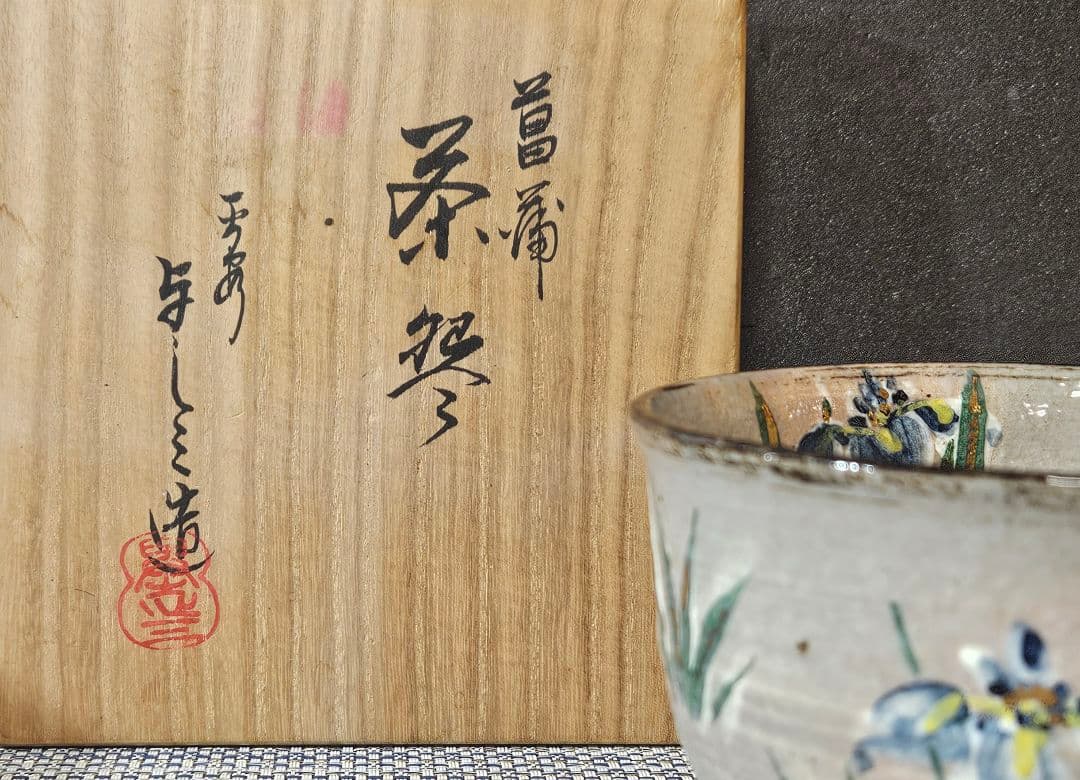 菖蒲
茶盌
平安
与し三造